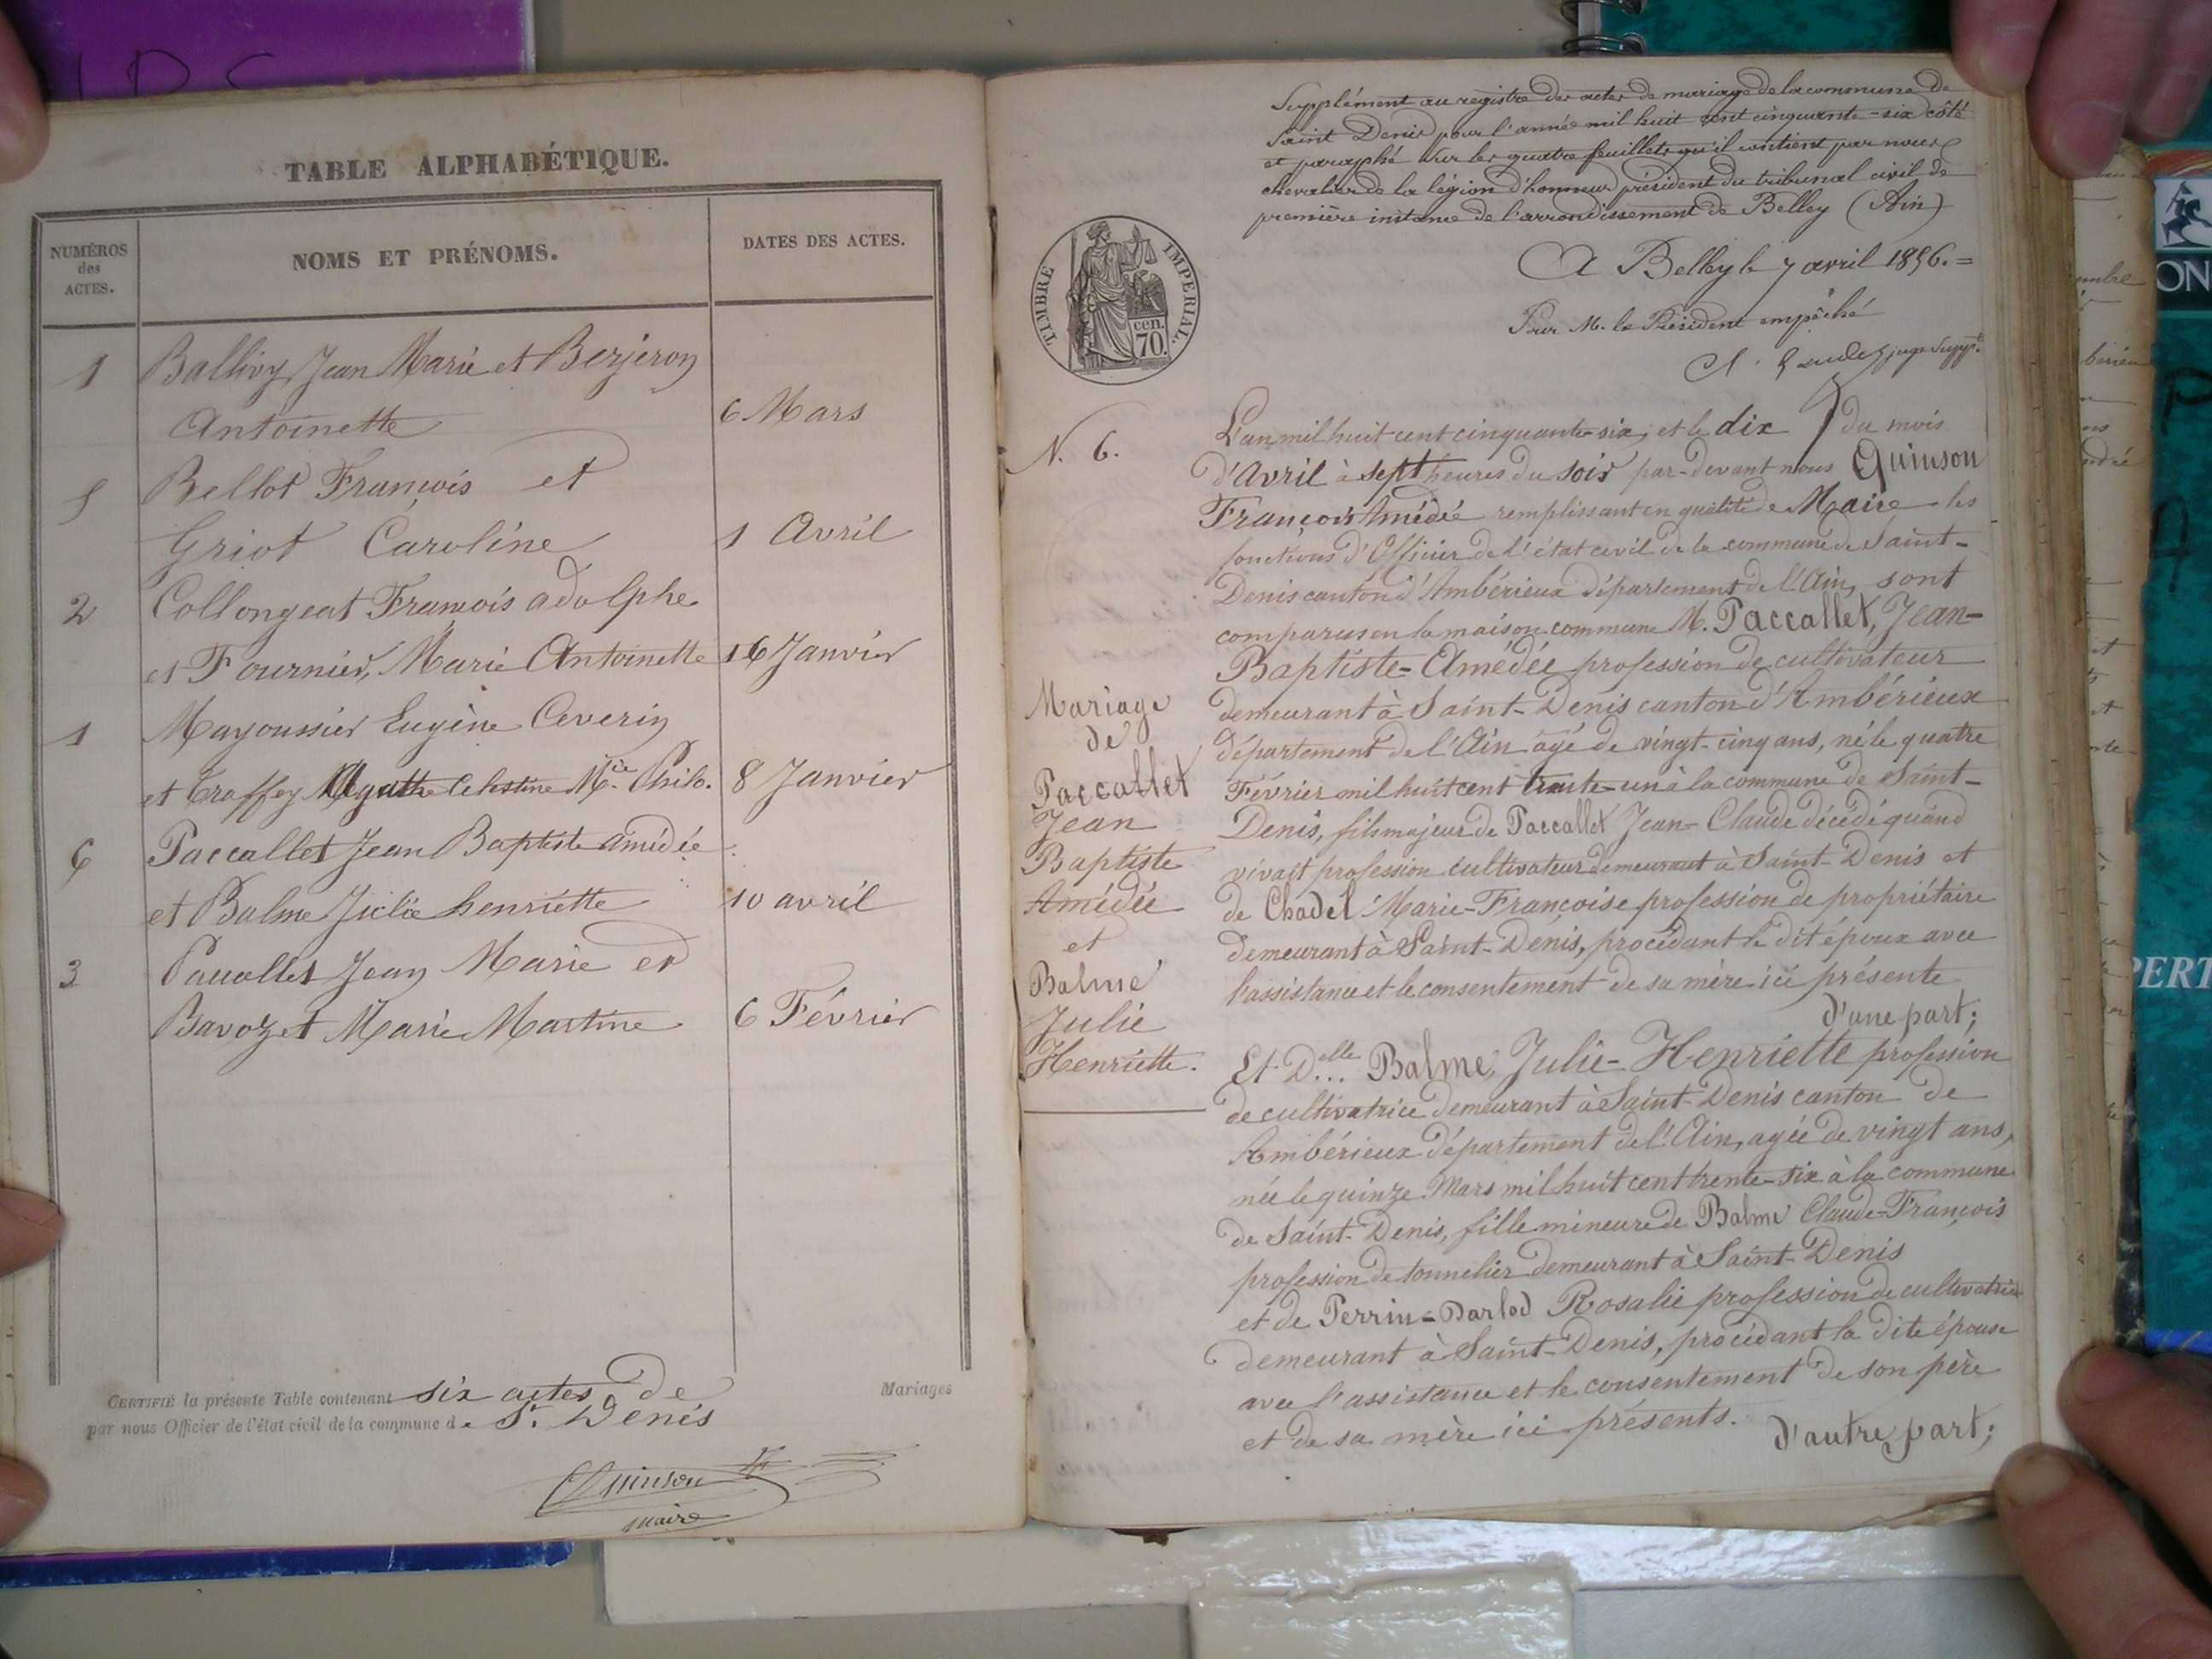 TABLE ALPHABÉTIQUE.
NUMÉROS
des
ACTES.
NOMS ET PRÉNOMS.
DATES DES ACTES.
1 Ballivy Jean Marie et Berjeron
Antoinette 6 Mars
5 Bellot François et
Griot Caroline 1 Avril
2 Collongeat François adolphe
et Fournier, Marie Antoinette 16 Janvier
1 Mayoussier Eugène Ceverin
et Traffey Agathe Celestine Mie Philo. 8 Janvier
6 Paccallet Jean Baptiste amédée
et Balme Julie henriette 10 avril
3 Paccallet Jean Marie et
Bavozet Marie Martine 6 Février
CERTIFIÉ la présente Table contenant six actes de Mariages
par nous Officier de l'état civil de la commune de St. Denis
Quinson
maire
Supplément au registre des actes de mariage de la commune de
Saint Denis pour l'année mil huit cent cinquante-six côté
et paraphé sur les quatre feuillets qu'il contient par nous
chevalier de la légion d'honneur président du tribunal civil de
première instance de l'arrondissement de Belley (Ain)
A Belley le 7 avril 1856. =
Pour M. le Président empêché
juge supp.t
TIMBRE IMPERIAL.
70 cen.
N. 6.
Mariage
de
Paccallet
Jean
Baptiste
Amédée
et
Balme
Julie
Henriette.
L'an mil huit cent cinquante-six, et le dix du mois
d'Avril à sept heures du soir par-devant nous Quinson
François Amédée remplissant en qualité de Maire les
fonctions d'Officier de l'état civil de la commune de Saint-
Denis canton d'Ambérieux département de l'Ain, sont
comparus en la maison commune M. Paccallet, Jean-
Baptiste-Amédée profession de cultivateur
demeurant à Saint-Denis canton d'Ambérieux
département de l'Ain agé de vingt-cinq ans, né le quatre
Février mil huit cent trente-un à la commune de Saint-
Denis, fils majeur de Paccallet Jean-Claude décédé quand
vivait profession cultivateur demeurant à Saint-Denis et
de Chadel Marie-Françoise profession de propriétaire
demeurant à Saint-Denis, procédant le dit époux avec
l'assistance et le consentement de sa mère ici présente
d'une part;
Et Delle Balme, Julie-Henriette profession
de cultivatrice demeurant à Saint-Denis canton de
Ambérieux département de l'Ain, agée de vingt ans,
née le quinze Mars mil huit cent trente-six à la commune
de Saint-Denis, fille mineure de Balme Claude-François
profession de tonnelier demeurant à Saint-Denis
et de Perrin-Darlod Rosalie profession de cultivatrice
demeurant à Saint-Denis, procédant la dite épouse
avec l'assistance et le consentement de son père
et de sa mère ici présents. d'autre part;
ON
PERT